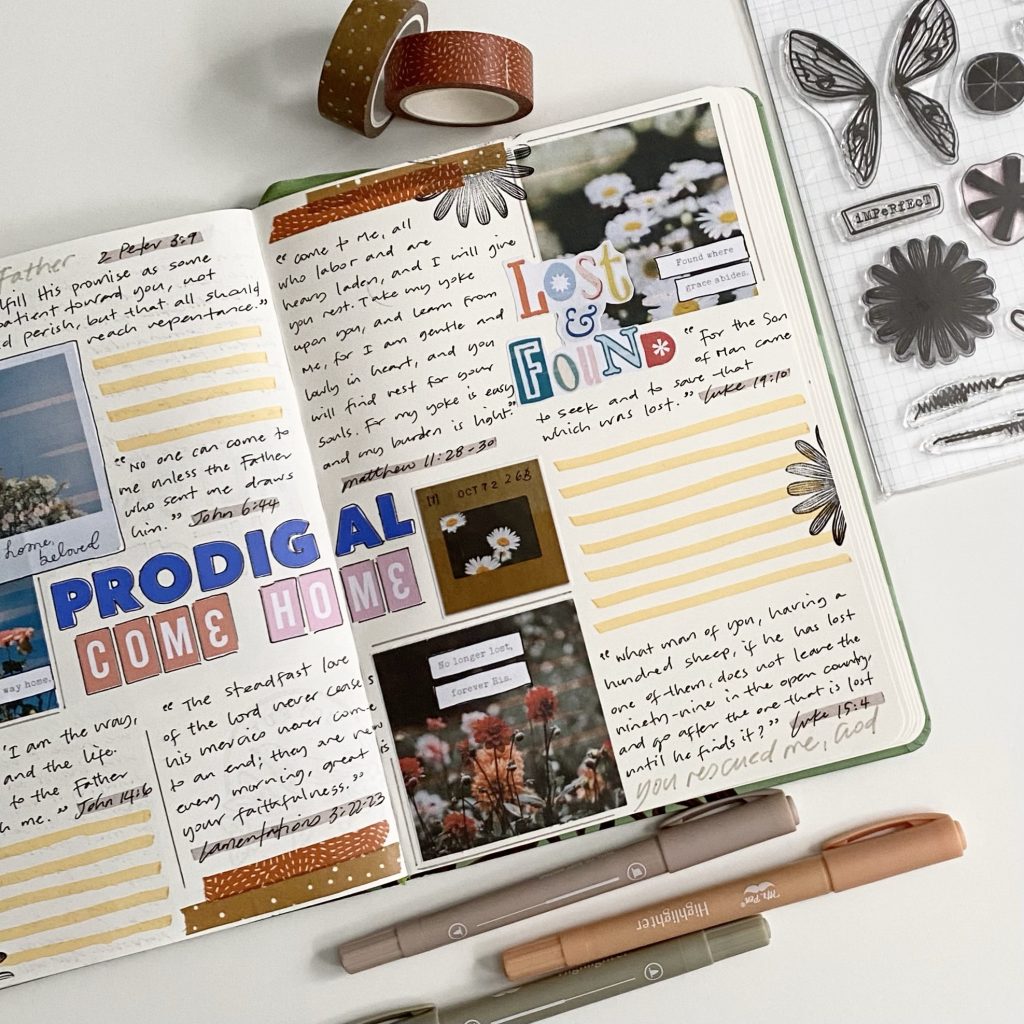 Father
2 Peter 3:9
lfill His promise as some
patient toward you, not
d perish, but that all should
reach repentance."
"No one can come to
me unless the Father
who sent me draws
him." John 6:44
home,
beloved
PRODIGAL
COME HOME
way home.
"I am the way,
and the life.
to the Father
h me." John 14:6
"The steadfast love
of the lord never ceases
his mercies never come
to an end; they are new
every morning, great is
your faithfulness."
Lamentations 3:22-23
"come to Me, all
who labor and are
heavy laden, and I will give
you rest. Take my yoke
upon you, and learn from
Me, for I am gentle and
lowly in heart, and you
will find rest for your
souls. For my yoke is easy
and my burden is light."
matthew 11:28-30
LOST
&
FOUND
Found where
grace abides.
"For the Son
of Man came
to seek and to save that
which was lost." Luke 19:10
OCT 72
No longer lost,
forever His.
"what man of you, having a
hundred sheep, if he has lost
one of them, does not leave the
ninety-nine in the open country,
and go after the one that is lost
until he finds it?" Luke 15:4
you rescued me, God
iMPeRfECT
Mr. Pen
Highlighter